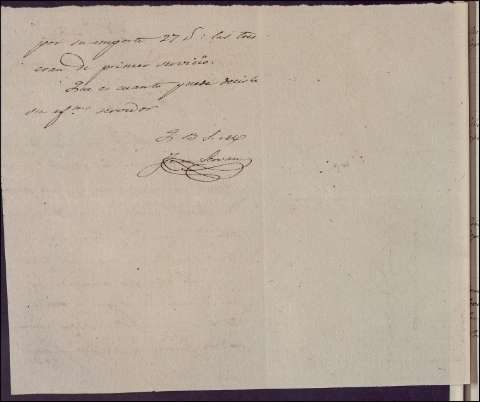 por su importe 27 $: las tres
eran de primer servicio.
Que es cuanto puede decirle
su af.mo servidor
Q. B. S. M.